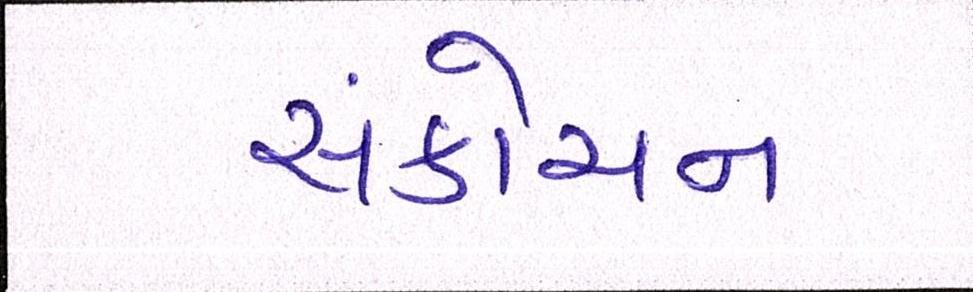 સંકોચન